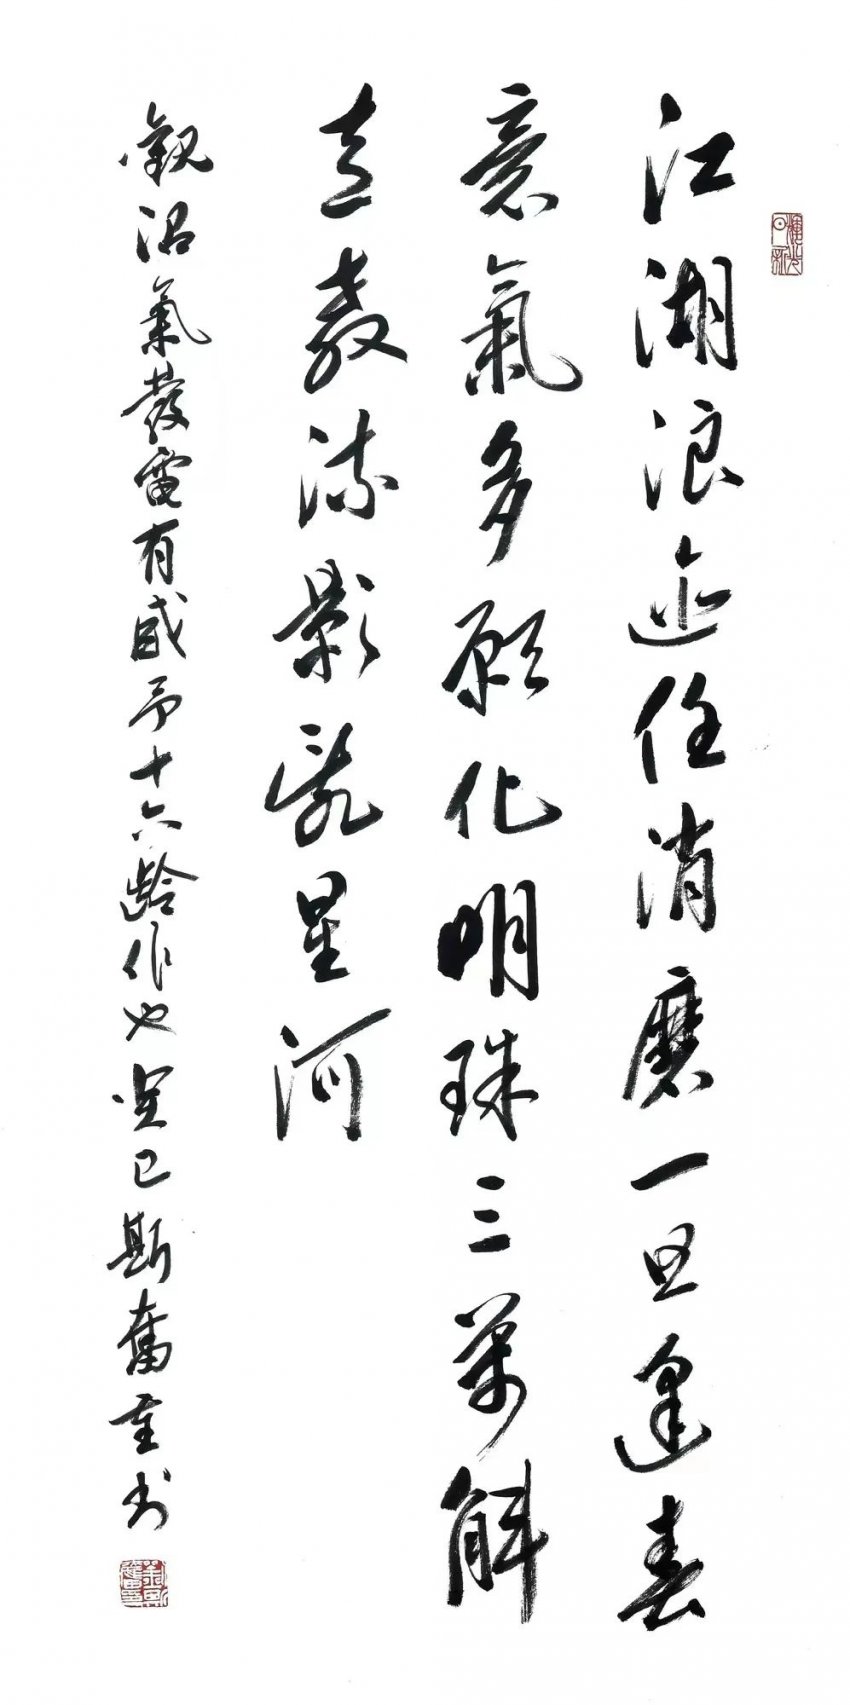 江湖浪迹任消磨一旦逢春
意氣多願化明珠三萬斛
直教流影亂星河
觀沼氣發電有感予十六齡作也癸巳斯奮重書